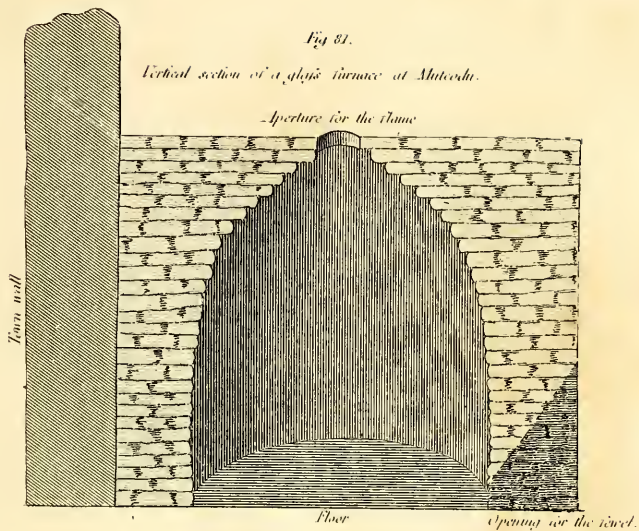 Fig 81.
Vertical section of a glass furnace at Muteodu.
Aperture for the flame
Town wall
Floor
Opening for the fewel.